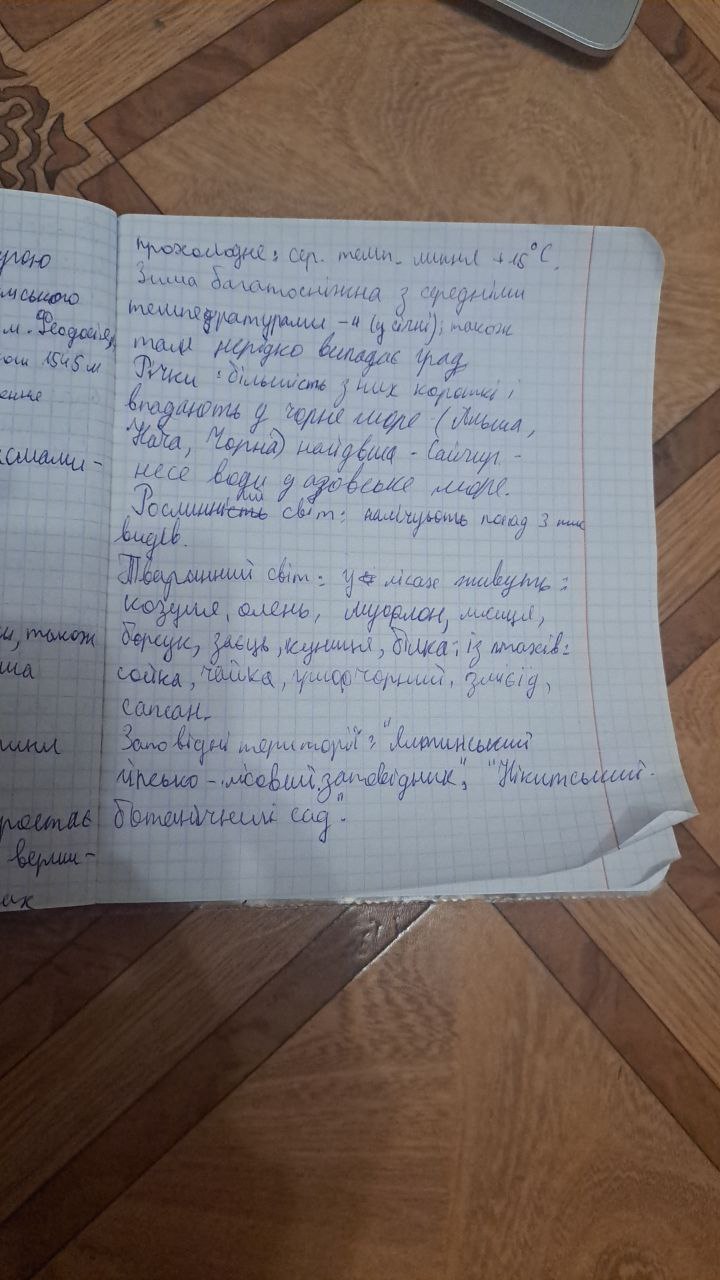 угою
мського
м. Феодосія,
1545 м
прохолодне; сер. темп. липня +15°С.
Зима багатосніжна з середніми
температурами -4 (у січні); також
там нерідко випадає град
Річки: більшість з них короткі і
впадають у чорне море (Альма,
Кача, Чорна) найдвша - Салгир -
несе води у азовське море.
Рослинний світ: налічують понад 3 тис
видів.
Тваринний світ: у лісах живуть:
козуля, олень, муфлон, лисиця,
борсук, заєць, куниця, білка; із птахів:
сойка, чайка, гриф чорний, змієїд,
сапсан.
Заповідні території: "Ялтинський
гірсько-лісовий заповідник", "Нікитський
ботанічний сад".
також
ша
ростає
верши-
ах